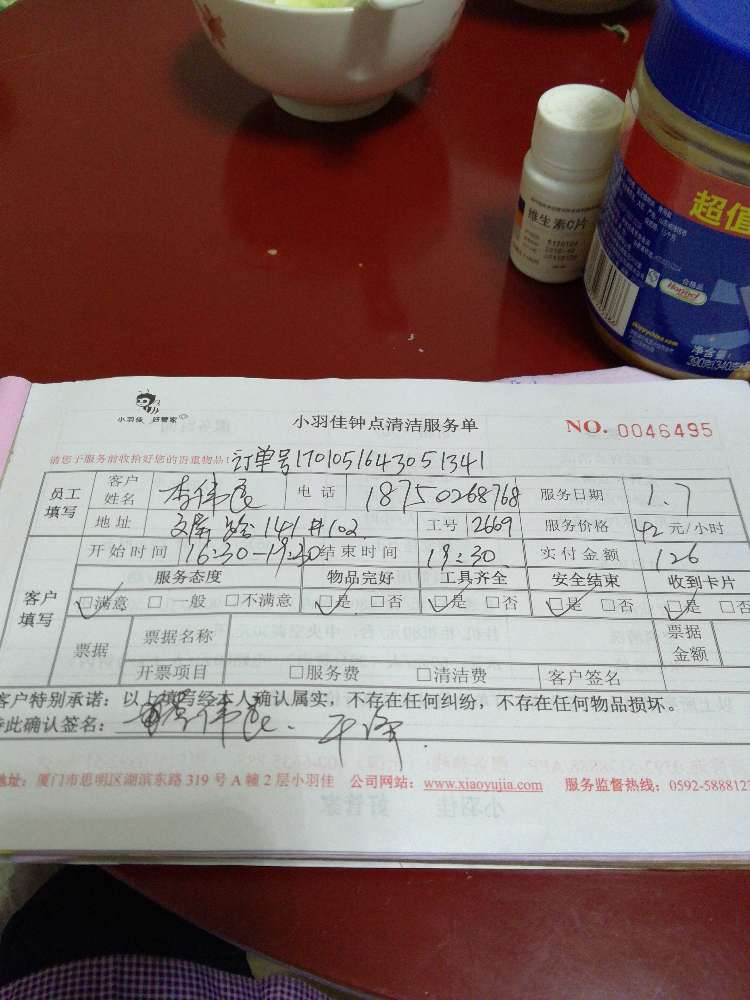 维生素C片
超值
Hormel
合格品
净含量:
390克(340克
小羽佳 好管家
小羽佳钟点清洁服务单
NO. 0046495
请您于服务前收拾好您的贵重物品! 订单号1701051643051341
员工填写 客户姓名 李伟良 电话 18750268768 服务日期 1.7
地址 文屏路141#102 工号 2669 服务价格 42元/小时
开始时间 16:30-19:30 结束时间 19:30 实付金额 126
客户填写 服务态度 物品完好 工具齐全 安全结束 收到卡片
☑满意 □一般 □不满意 ☑是 □否 ☑是 □否 ☑是 □否 ☑是 □否
票据 票据名称 票据金额
开票项目 □服务费 □清洁费 客户签名
客户特别承诺:以上填写经本人确认属实,不存在任何纠纷,不存在任何物品损坏。
特此确认签名: 李伟良
地址:厦门市思明区湖滨东路 319 号 A 幢 2 层小羽佳 公司网站:www.xiaoyujia.com 服务监督热线:0592-588812